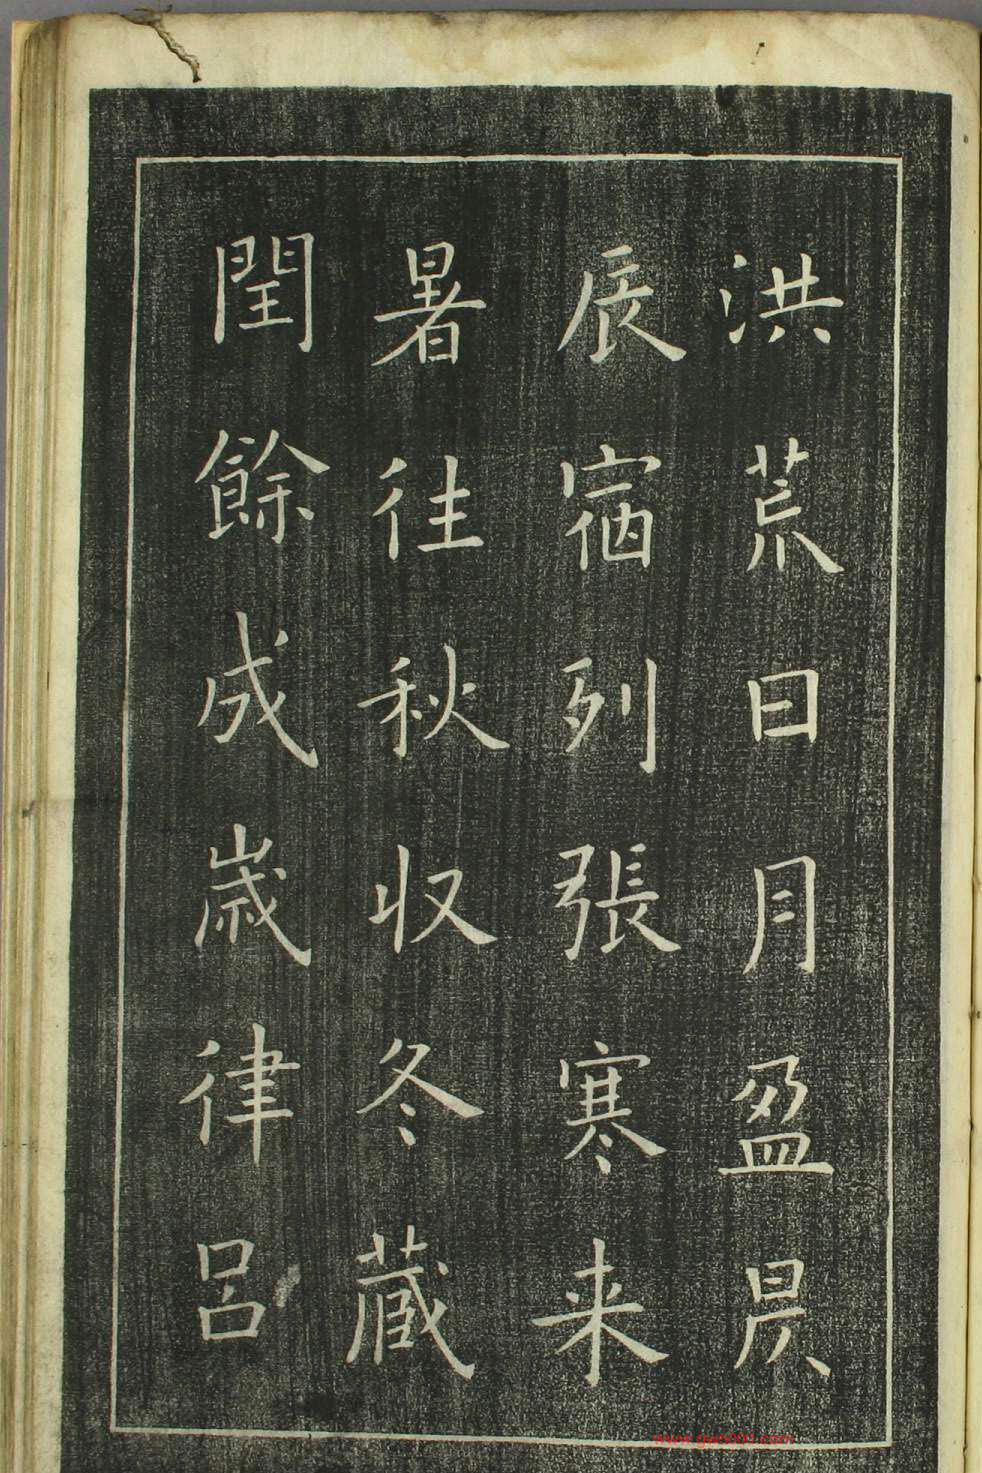 洪荒日月盈昃
辰宿列張寒来
暑往秋收冬蔵
閏餘成歲律呂
www.gw5000.com